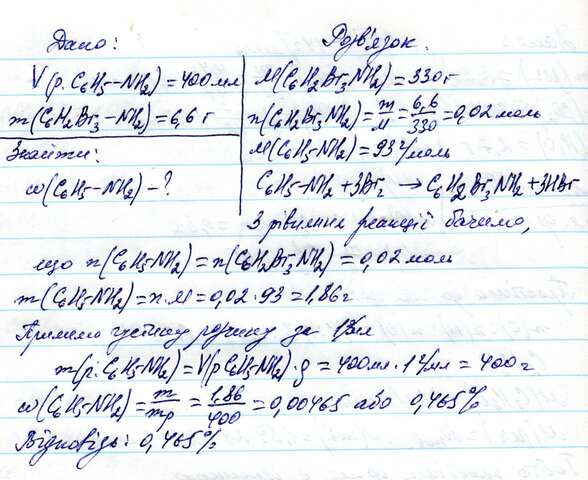 Дано:
V(р. C₆H₅–NH₂) = 400 мл
m(C₆H₂Br₃–NH₂) = 6,6 г
Знайти:
ω(C₆H₅–NH₂) – ?
Розв'язок.
M(C₆H₂Br₃NH₂) = 330 г
n(C₆H₂Br₃NH₂) = m/M = 6,6/330 = 0,02 моль
M(C₆H₅–NH₂) = 93 г/моль
C₆H₅–NH₂ + 3Br₂ → C₆H₂Br₃NH₂ + 3HBr
З рівняння реакції бачимо,
що n(C₆H₅–NH₂) = n(C₆H₂Br₃NH₂) = 0,02 моль
m(C₆H₅–NH₂) = n·M = 0,02·93 = 1,86 г
Приймемо густину розчину за 1г/мл
m(р. C₆H₅–NH₂) = V(р C₆H₅–NH₂)·ρ = 400мл·1 г/мл = 400 г
ω(C₆H₅–NH₂) = m/mр = 1,86/400 = 0,00465 або 0,465%
Відповідь: 0,465%